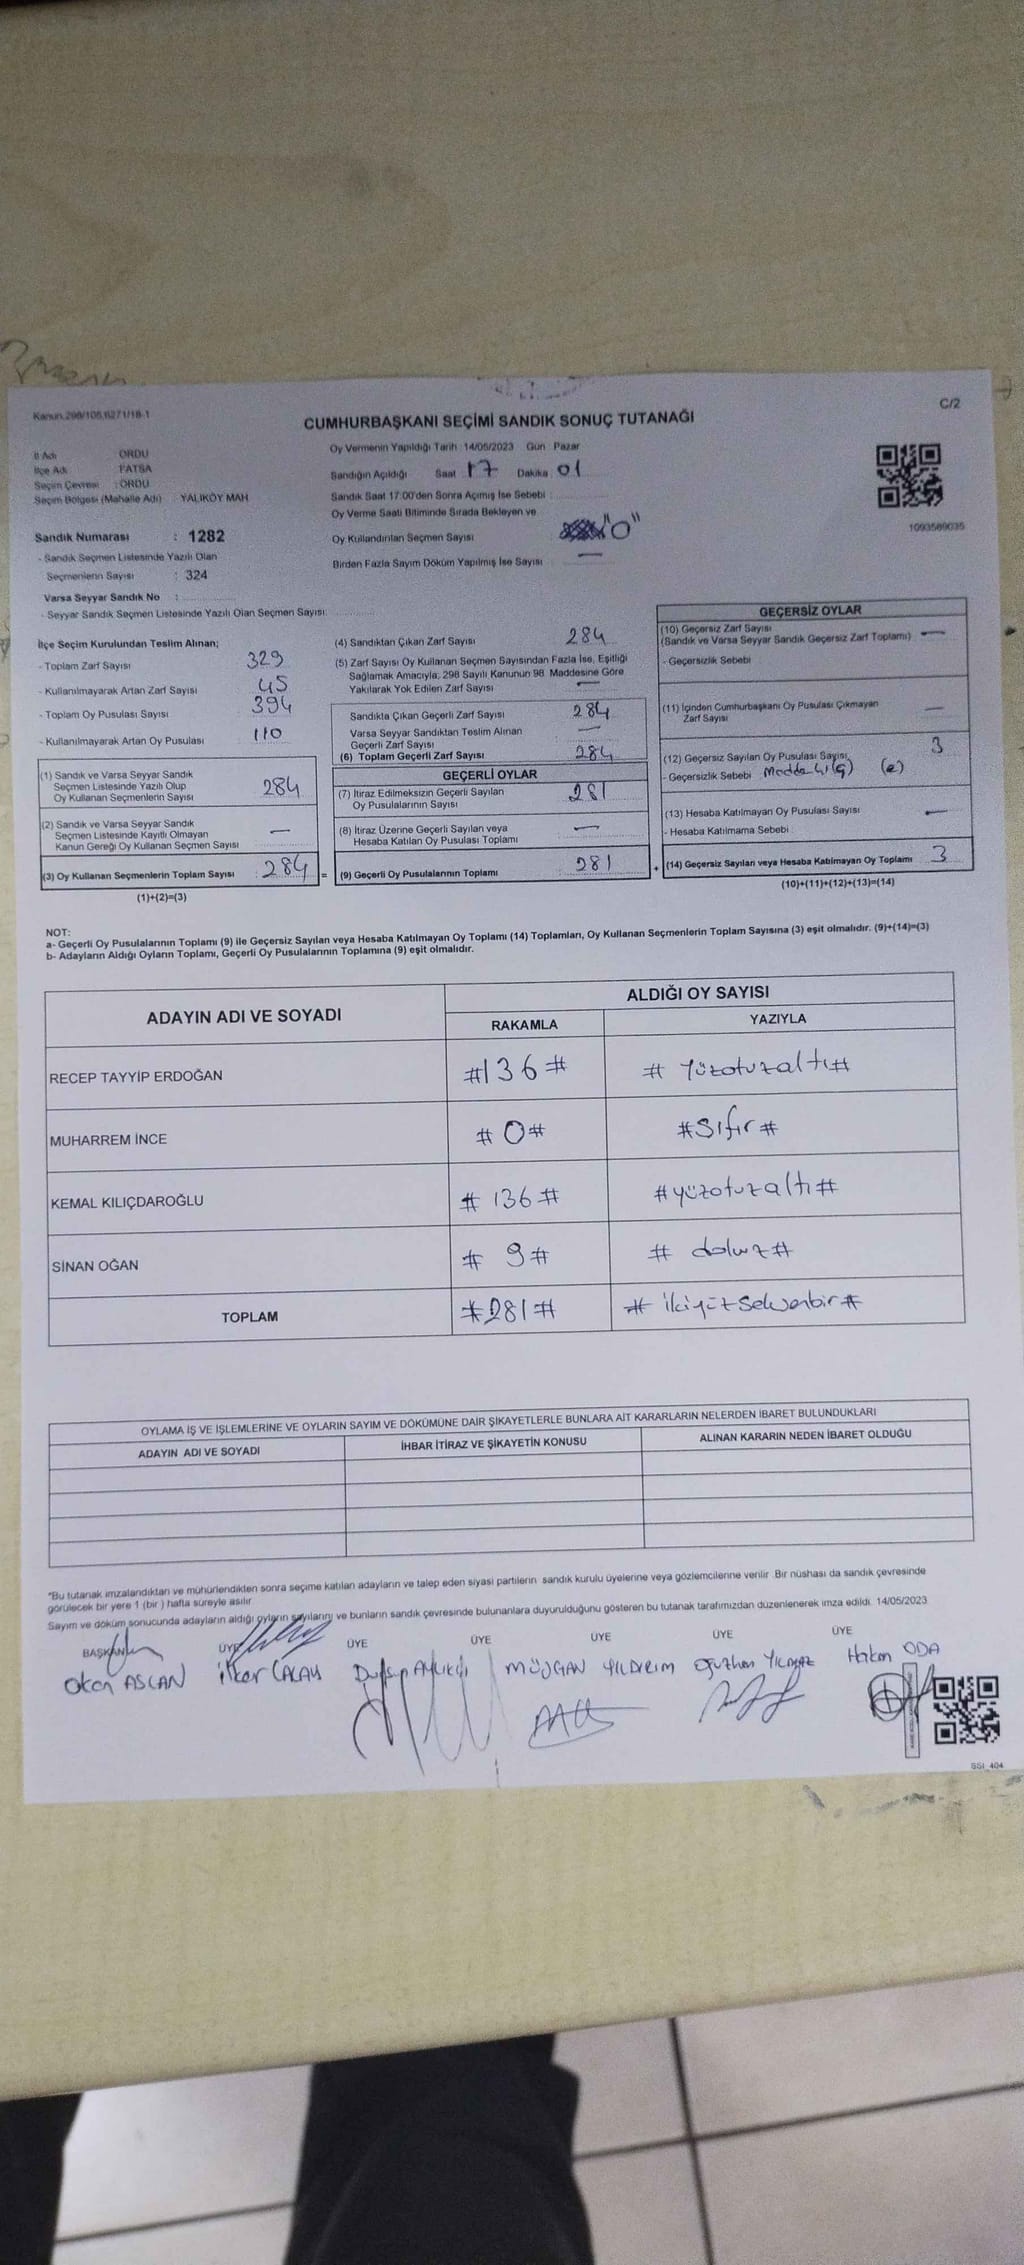 Kanun.298/105,6271/18-1
C/2
CUMHURBAŞKANI SEÇİMİ SANDIK SONUÇ TUTANAĞI
İl Adı ORDU
İlçe Adı : FATSA
Seçim Çevresi : ORDU
Seçim Bölgesi (Mahalle Adı) : YALIKÖY MAH
Sandık Numarası : 1282
- Sandık Seçmen Listesinde Yazılı Olan
Seçmenlerin Sayısı : 324
Varsa Seyyar Sandık No :
- Seyyar Sandık Seçmen Listesinde Yazılı Olan Seçmen Sayısı:
Oy Vermenin Yapıldığı Tarih :14/05/2023 Gün : Pazar
Sandığın Açıldığı Saat 17 Dakika : 01
Sandık Saat 17:00'den Sonra Açımış İse Sebebi :
Oy Verme Saati Bitiminde Sırada Bekleyen ve
Oy Kullandırılan Seçmen Sayısı "0"
Birden Fazla Sayım Döküm Yapılmış İse Sayısı : —
1093589035
İlçe Seçim Kurulundan Teslim Alınan;
- Toplam Zarf Sayısı 329
- Kullanılmayarak Artan Zarf Sayısı 45
- Toplam Oy Pusulası Sayısı 394
- Kullanılmayarak Artan Oy Pusulası 110
(1) Sandık ve Varsa Seyyar Sandık
Seçmen Listesinde Yazılı Olup
Oy Kullanan Seçmenlerin Sayısı 284
(2) Sandık ve Varsa Seyyar Sandık
Seçmen Listesinde Kayıtlı Olmayan
Kanun Gereği Oy Kullanan Seçmen Sayısı —
(3) Oy Kullanan Seçmenlerin Toplam Sayısı : 284 =
(1)+(2)=(3)
(4) Sandıktan Çıkan Zarf Sayısı 284
(5) Zarf Sayısı Oy Kullanan Seçmen Sayısından Fazla İse, Eşitliği
Sağlamak Amacıyla, 298 Sayılı Kanunun 98. Maddesine Göre
Yakılarak Yok Edilen Zarf Sayısı —
Sandıkta Çıkan Geçerli Zarf Sayısı 284
Varsa Seyyar Sandıktan Teslim Alınan
Geçerli Zarf Sayısı —
(6) Toplam Geçerli Zarf Sayısı 284
GEÇERLİ OYLAR
(7) İtiraz Edilmeksizin Geçerli Sayılan
Oy Pusulalarının Sayısı : 281
(8) İtiraz Üzerine Geçerli Sayılan veya
Hesaba Katılan Oy Pusulası Toplamı : —
(9) Geçerli Oy Pusulalarının Toplamı : 281 +
GEÇERSİZ OYLAR
(10) Geçersiz Zarf Sayısı
(Sandık ve Varsa Seyyar Sandık Geçersiz Zarf Toplamı) —
- Geçersizlik Sebebi
(11) İçinden Cumhurbaşkanı Oy Pusulası Çıkmayan
Zarf Sayısı —
(12) Geçersiz Sayılan Oy Pusulası Sayısı 3
- Geçersizlik Sebebi Madde 41(g) (e)
(13) Hesaba Katılmayan Oy Pusulası Sayısı —
- Hesaba Katılmama Sebebi :
(14) Geçersiz Sayılan veya Hesaba Katılmayan Oy Toplamı 3
(10)+(11)+(12)+(13)=(14)
NOT:
a- Geçerli Oy Pusulalarının Toplamı (9) ile Geçersiz Sayılan veya Hesaba Katılmayan Oy Toplamı (14) Toplamları, Oy Kullanan Seçmenlerin Toplam Sayısına (3) eşit olmalıdır. (9)+(14)=(3)
b- Adayların Aldığı Oyların Toplamı, Geçerli Oy Pusulalarının Toplamına (9) eşit olmalıdır.
ADAYIN ADI VE SOYADI ALDIĞI OY SAYISI
RAKAMLA YAZIYLA
RECEP TAYYİP ERDOĞAN #136# # Yüzotuzaltı#
MUHARREM İNCE # 0# #Sıfır#
KEMAL KILIÇDAROĞLU # 136# #yüzotuzaltı#
SİNAN OĞAN # 9# # dokuz#
TOPLAM #281# # ikiyüzseksenbir#
OYLAMA İŞ VE İŞLEMLERİNE VE OYLARIN SAYIM VE DÖKÜMÜNE DAİR ŞİKAYETLERLE BUNLARA AİT KARARLARIN NELERDEN İBARET BULUNDUKLARI
ADAYIN ADI VE SOYADI İHBAR İTİRAZ VE ŞİKAYETİN KONUSU ALINAN KARARIN NEDEN İBARET OLDUĞU
*Bu tutanak imzalandıktan ve mühürlendikten sonra seçime katılan adayların ve talep eden siyasi partilerin sandık kurulu üyelerine veya gözlemcilerine verilir .Bir nüshası da sandık çevresinde
görülecek bir yere 1 (bir ) hafta süreyle asılır.
Sayım ve döküm sonucunda adayların aldığı oyların sayılarını ve bunların sandık çevresinde bulunanlara duyurulduğunu gösteren bu tutanak tarafımızdan düzenlenerek imza edildi. 14/05/2023
BAŞKAN ÜYE ÜYE ÜYE ÜYE ÜYE ÜYE
Okan ASLAN İlker ÇALAY MÜJGAN YILDIRIM Oğuzhan YILMAZ Hakan ODA
SSI_404